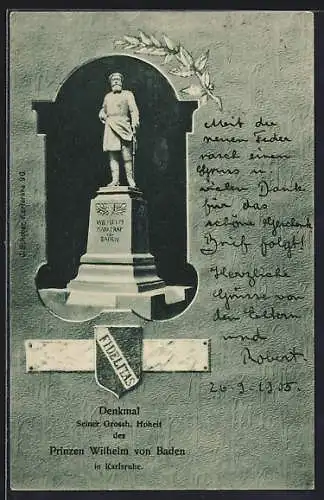 Mit der
neuen Feder
rasch einen
Gruss u.
vielen Dank
für das
schöne Geschenk
Brief folgt!
Herzliche
Grüsse von
den Eltern
und
Robert.
26.9.1905.
WILHELM
MARKGRAF
VON
BADEN
FIDELITAS
Denkmal
Seiner Grossh. Hoheit
des
Prinzen Wilhelm von Baden
in Karlsruhe.
Karlsruhe